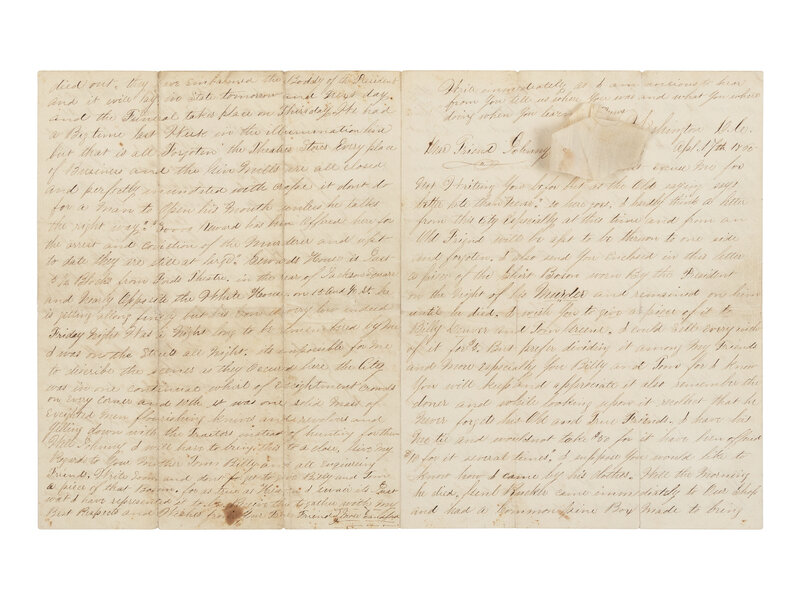 died out. they have embalmed the Body of the President
and it will lay in State tomorrow and Next day.
and the Funeral takes place on Thursday. We had
a Big time last Week in the illumination line
but that is all Forgoten. the Theatres Stores Every place
of Business and the Gin Mills are all closed
and perfectly smothered with crape it dont do
for a man to Open his Mouth unless he talks
the right way. Reward has been Offered here for
the arrest and conviction of the Murderer and up
to date they are still at large. Sewards House is Just
Blocks from Fords Theatre. in the rear of Jackson Square
and Nearly Opposite the White House on St he
is getting along finely but his son is very low indeed
Friday Night Was a Night long to be remembered by Me
I was on the Streets all Night. its impossible for me
to discribe the scenes as they Occured here the City
was in one continual whirl of Exightment crowds
on Every corner and it was one solid Mass of
Exighted men flourishing knives and revolvers and
Yelling down with the Traitors instead of hunting for them
Well Johnny I will have to bring this to a close. Give my
Regards to Your Mother Tom Billy and all enquiring
Friends. Write Soon and dont forget to give Billy and Tom
a piece of that Bosom. for as true as is in it is Just
wat I have represented it to be
Best Respects and Wishes from Your True Friend
Write immediately as I am anxious to hear
from You tell us where You was and what You where
doing when You
Washington D.C.
April 17th 1865
Dear Friend Johnny
excuse me for
My Writing You before but as the Old saying says
better late than never. so here goes. I hardly think a letter
from this City Especially at this time and from an
Old Friend will be apt to be thrown to one side
and forgoten. I also send You enclosed in this letter
a piece of the Shirt Bosom worn by the President
on the Night of his Murder and remained on him
until he died. I wish You to give a piece of it to
Billy and Tom I could sell every inch
of it for But prefer dividing it among My Friends
and More especially You Billy and Tom for I know
You will keep and appreciate it also remember the
doner and while looking upon it reclect that he
Never forgets his Old and True Friends. I have his
Neck tie and would not take for it have been offered
for it several times. I suppose You would like to
know how I came by his clothes. Well the Morning
he died. came immediately to Our Shop
and had a Common Pine Box made to bring